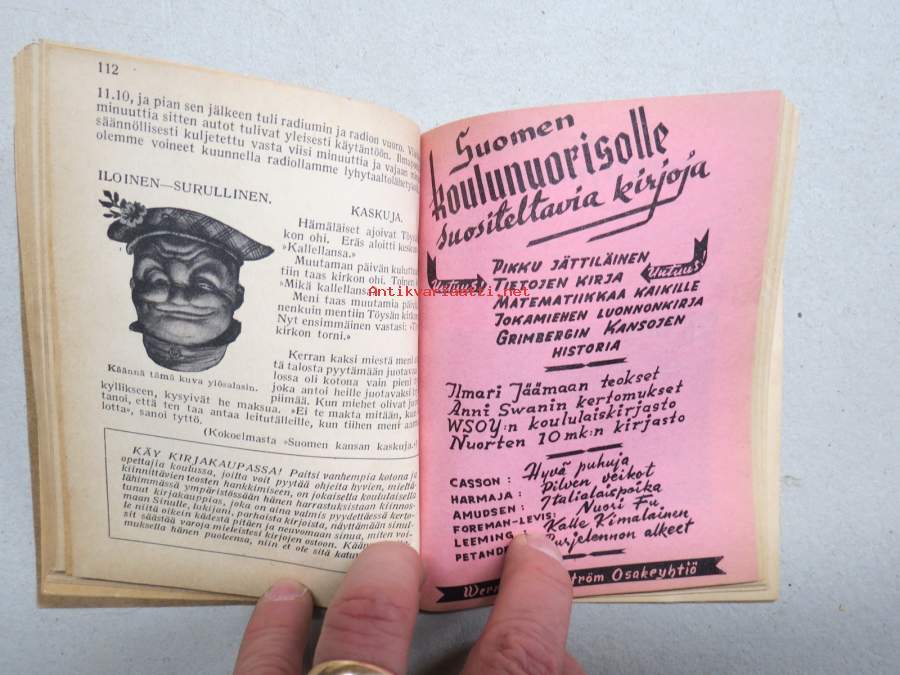 112
11.10, ja pian sen jälkeen tuli radiumin ja radion vuoro.
minuuttia sitten autot tulivat yleisesti käytäntöön.
säännöllisesti kuljetettu vasta viisi minuuttia ja vajaan
olemme voineet kuunnella radiollamme
ILOINEN—SURULLINEN.
Käännä tämä kuva ylösalasin.
KASKUJA.
Hämäläiset ajoivat
kon ohi. Eräs aloitti
»Kallellansa.»
Muutaman päivän
tiin taas kirkon ohi.
»Mikä
Meni taas muutamia
nenkuin mentiin Töysän
Nyt ensimmäinen vastasi:
kirkon torni.»
Kerran kaksi miestä
tä talosta pyytämään
lossa oli kotona vain pieni
joka antoi heille juotavaksi
piimää. Kun miehet olivat
kyllikseen, kysyivät he maksua. »Ei te makta mitään,
tanoi, että ten taa antaa leitutälleille, kun tiihen meni
lotta», sanoi tyttö.
(Kokoelmasta »Suomen kansan kaskuja.»)
KÄY KIRJAKAUPASSA! Paitsi vanhempia kotona ja
opettajia koulussa, joilta voit pyytää ohjeita hyvien, mieltä-
kiinnittävien teosten hankkimiseen, on jokaisella koululaisella
lähimmässä ympäristössään hänen harrastuksistaan kiinnos-
tunut kirjakauppias, joka on aina valmis pyydettäessä kerto-
maan Sinulle, lukijani, parhaista kirjoista, näyttämään sinul-
le niitä oikein kädestä pitäen ja neuvomaan sinua, miten voi-
sit säästää varoja mieleistesi kirjojen ostoon.
muksella hänen puoleensa, niin et ole sitä
Suomen
koulunuorisolle
suositeltavia kirjoja
Uutuus!
Uutuus!
PIKKU JÄTTILÄINEN
TIETOJEN KIRJA
MATEMATIIKKAA KAIKILLE
JOKAMIEHEN LUONNONKIRJA
GRIMBERGIN KANSOJEN
HISTORIA
Ilmari Jäämaan teokset
Anni Swanin kertomukset
WSOY:n koululaiskirjasto
Nuorten 10 mk:n kirjasto
CASSON: Hyvä puhuja
HARMAJA: Pilven veikot
AMUDSEN: Italialaispoika
FOREMAN-LEVIS: Nuori Fu
LEEMING Kalle Kimalainen
Purjelennon alkeet
Osakeyhtiö
Antikvariaatti.net